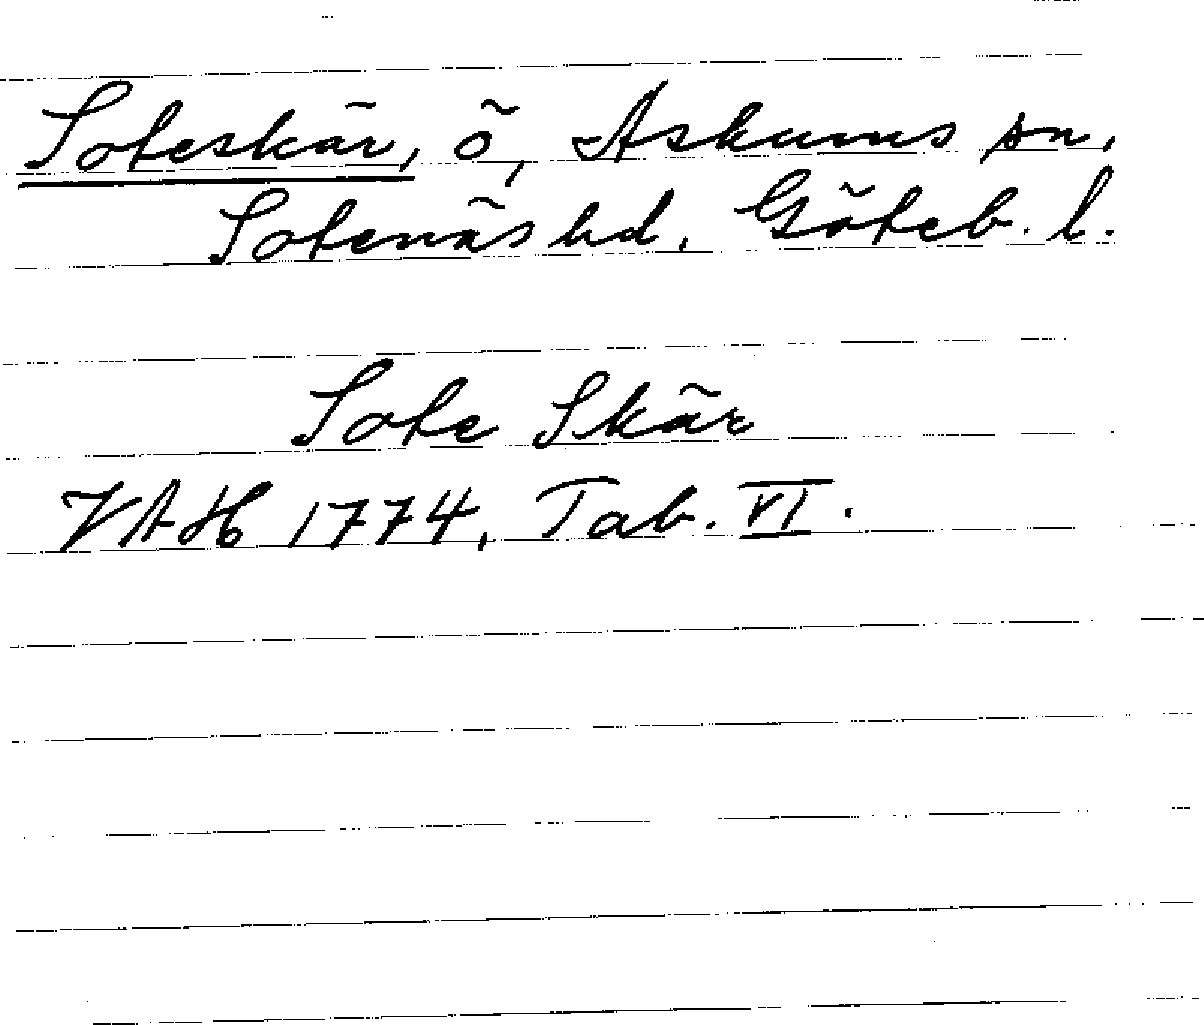 Soteskär, ö, Askums sn,
Sotenäs hd. Göteb. l.
Sote Skär
VAH 1774, Tab. VI.